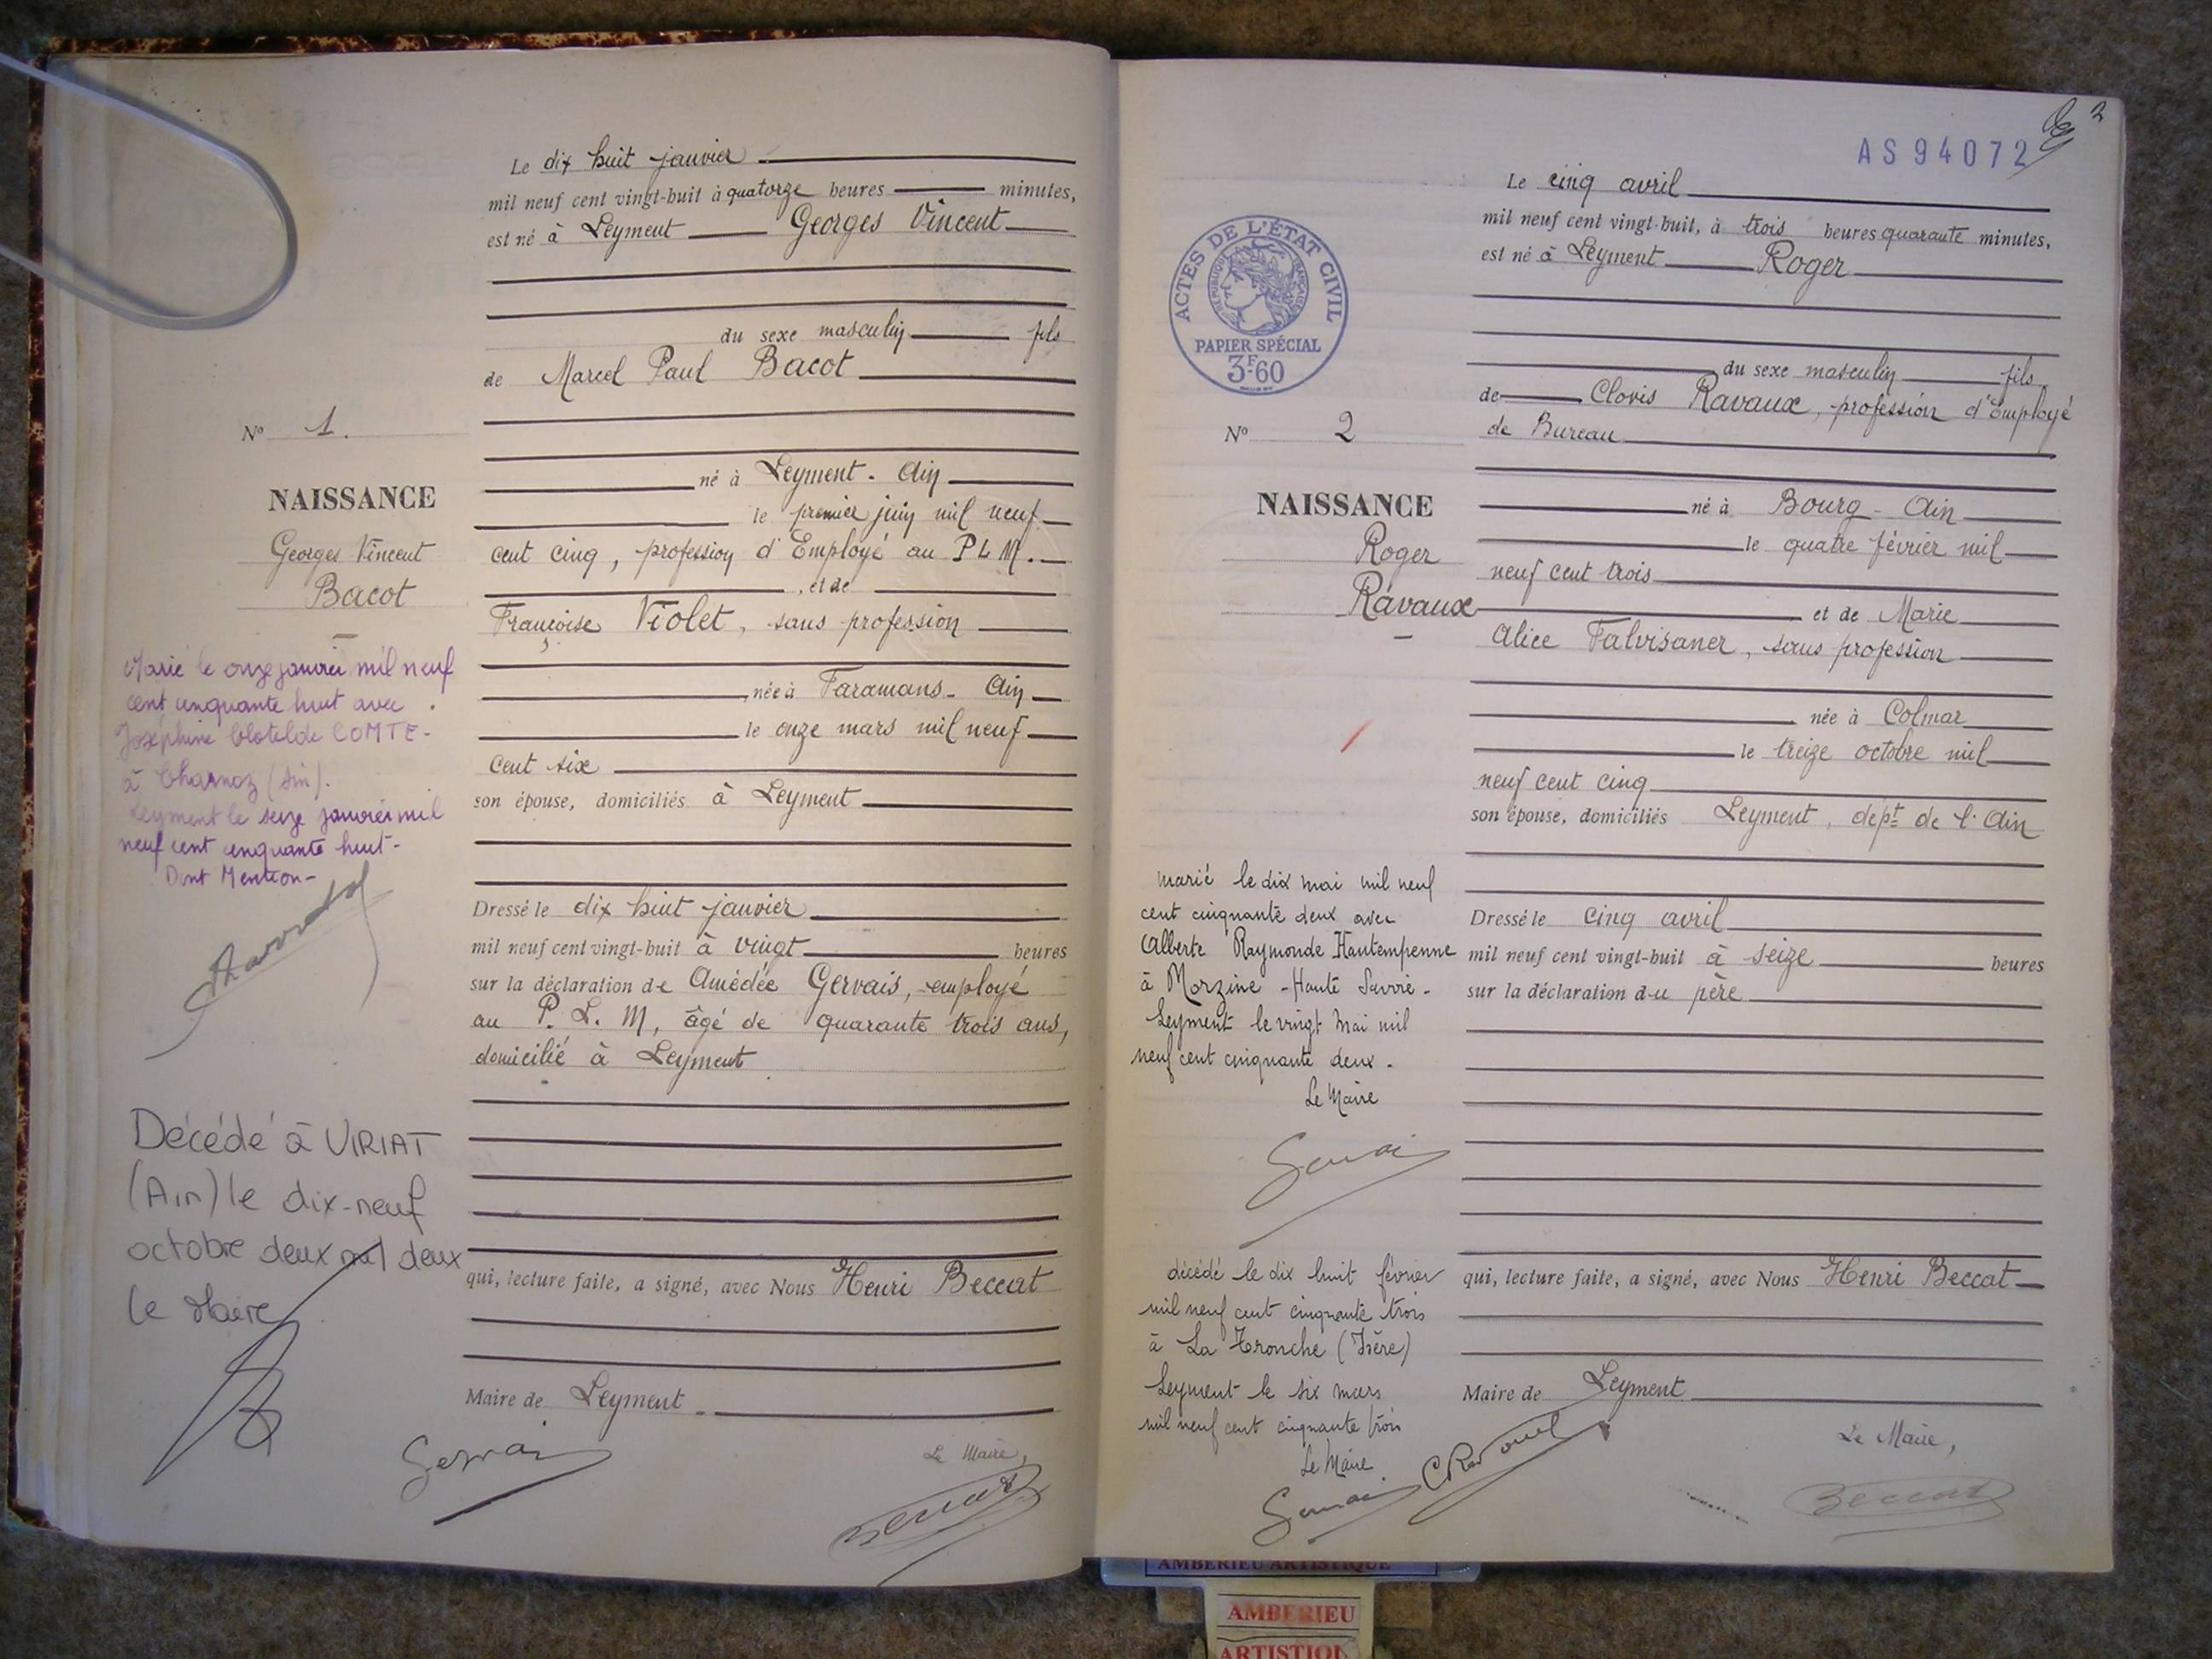 Le dix huit janvier
mil neuf cent vingt-huit à quatorze heures minutes,
est né à Leyment Georges Vincent
du sexe masculin fils
de Marcel Paul Bacot
né à Leyment - Ain
le premier juin mil neuf
cent cinq, profession d'Employé au P L M.
, et de
Françoise Violet, sans profession
, née à Faramans - Ain
le onze mars mil neuf
cent six
son épouse, domiciliés à Leyment
Dressé le dix huit janvier
mil neuf cent vingt-huit à vingt heures
sur la déclaration de Amédée Gervais, employé
au P. L. M, âgé de quarante trois ans,
domicilié à Leyment
qui, lecture faite, a signé, avec Nous Henri Beccat
Maire de Leyment
Gervais
Le Maire,
Beccat
No 1.
NAISSANCE
Georges Vincent
Bacot
Marié le onze janvier mil neuf
cent cinquante huit avec
Joséphine Clotilde COMTE -
à Charnoz (Ain).
Leyment le seize janvier mil
neuf cent cinquante huit -
Dont Mention -
Décédé à VIRIAT
(Ain) le dix-neuf
octobre deux mil deux
le Maire
AS 94072
2
Le cinq avril
mil neuf cent vingt-huit, à trois heures quarante minutes,
est né à Leyment Roger
du sexe masculin fils
de Clovis Ravaux, profession d'Employé
de Bureau
né à Bourg - Ain
le quatre février mil
neuf cent trois
et de Marie
Alice Falvisaner, sans profession
née à Colmar
le treize octobre mil
neuf cent cinq
son épouse, domiciliés Leyment, dept de l'Ain
Dressé le cinq avril
mil neuf cent vingt-huit à seize heures
sur la déclaration du père
qui, lecture faite, a signé, avec Nous Henri Beccat
Maire de Leyment
Le Maire,
Beccat
ACTES DE L'ÉTAT CIVIL
RÉPUBLIQUE FRANÇAISE
PAPIER SPÉCIAL
3F60
No 2
NAISSANCE
Roger
Ravaux
marié le dix mai mil neuf
cent cinquante deux avec
Alberte Raymonde Hautempenne
à Morzine - Haute Savoie -
Leyment le vingt mai mil
neuf cent cinquante deux -
Le Maire
Gervais
décédé le dix huit février
mil neuf cent cinquante trois
à La Tronche (Isère)
Leyment le six mars
mil neuf cent cinquante trois
Le Maire
Gervais
AMBERIEU ARTISTIQUE
AMBERIEU